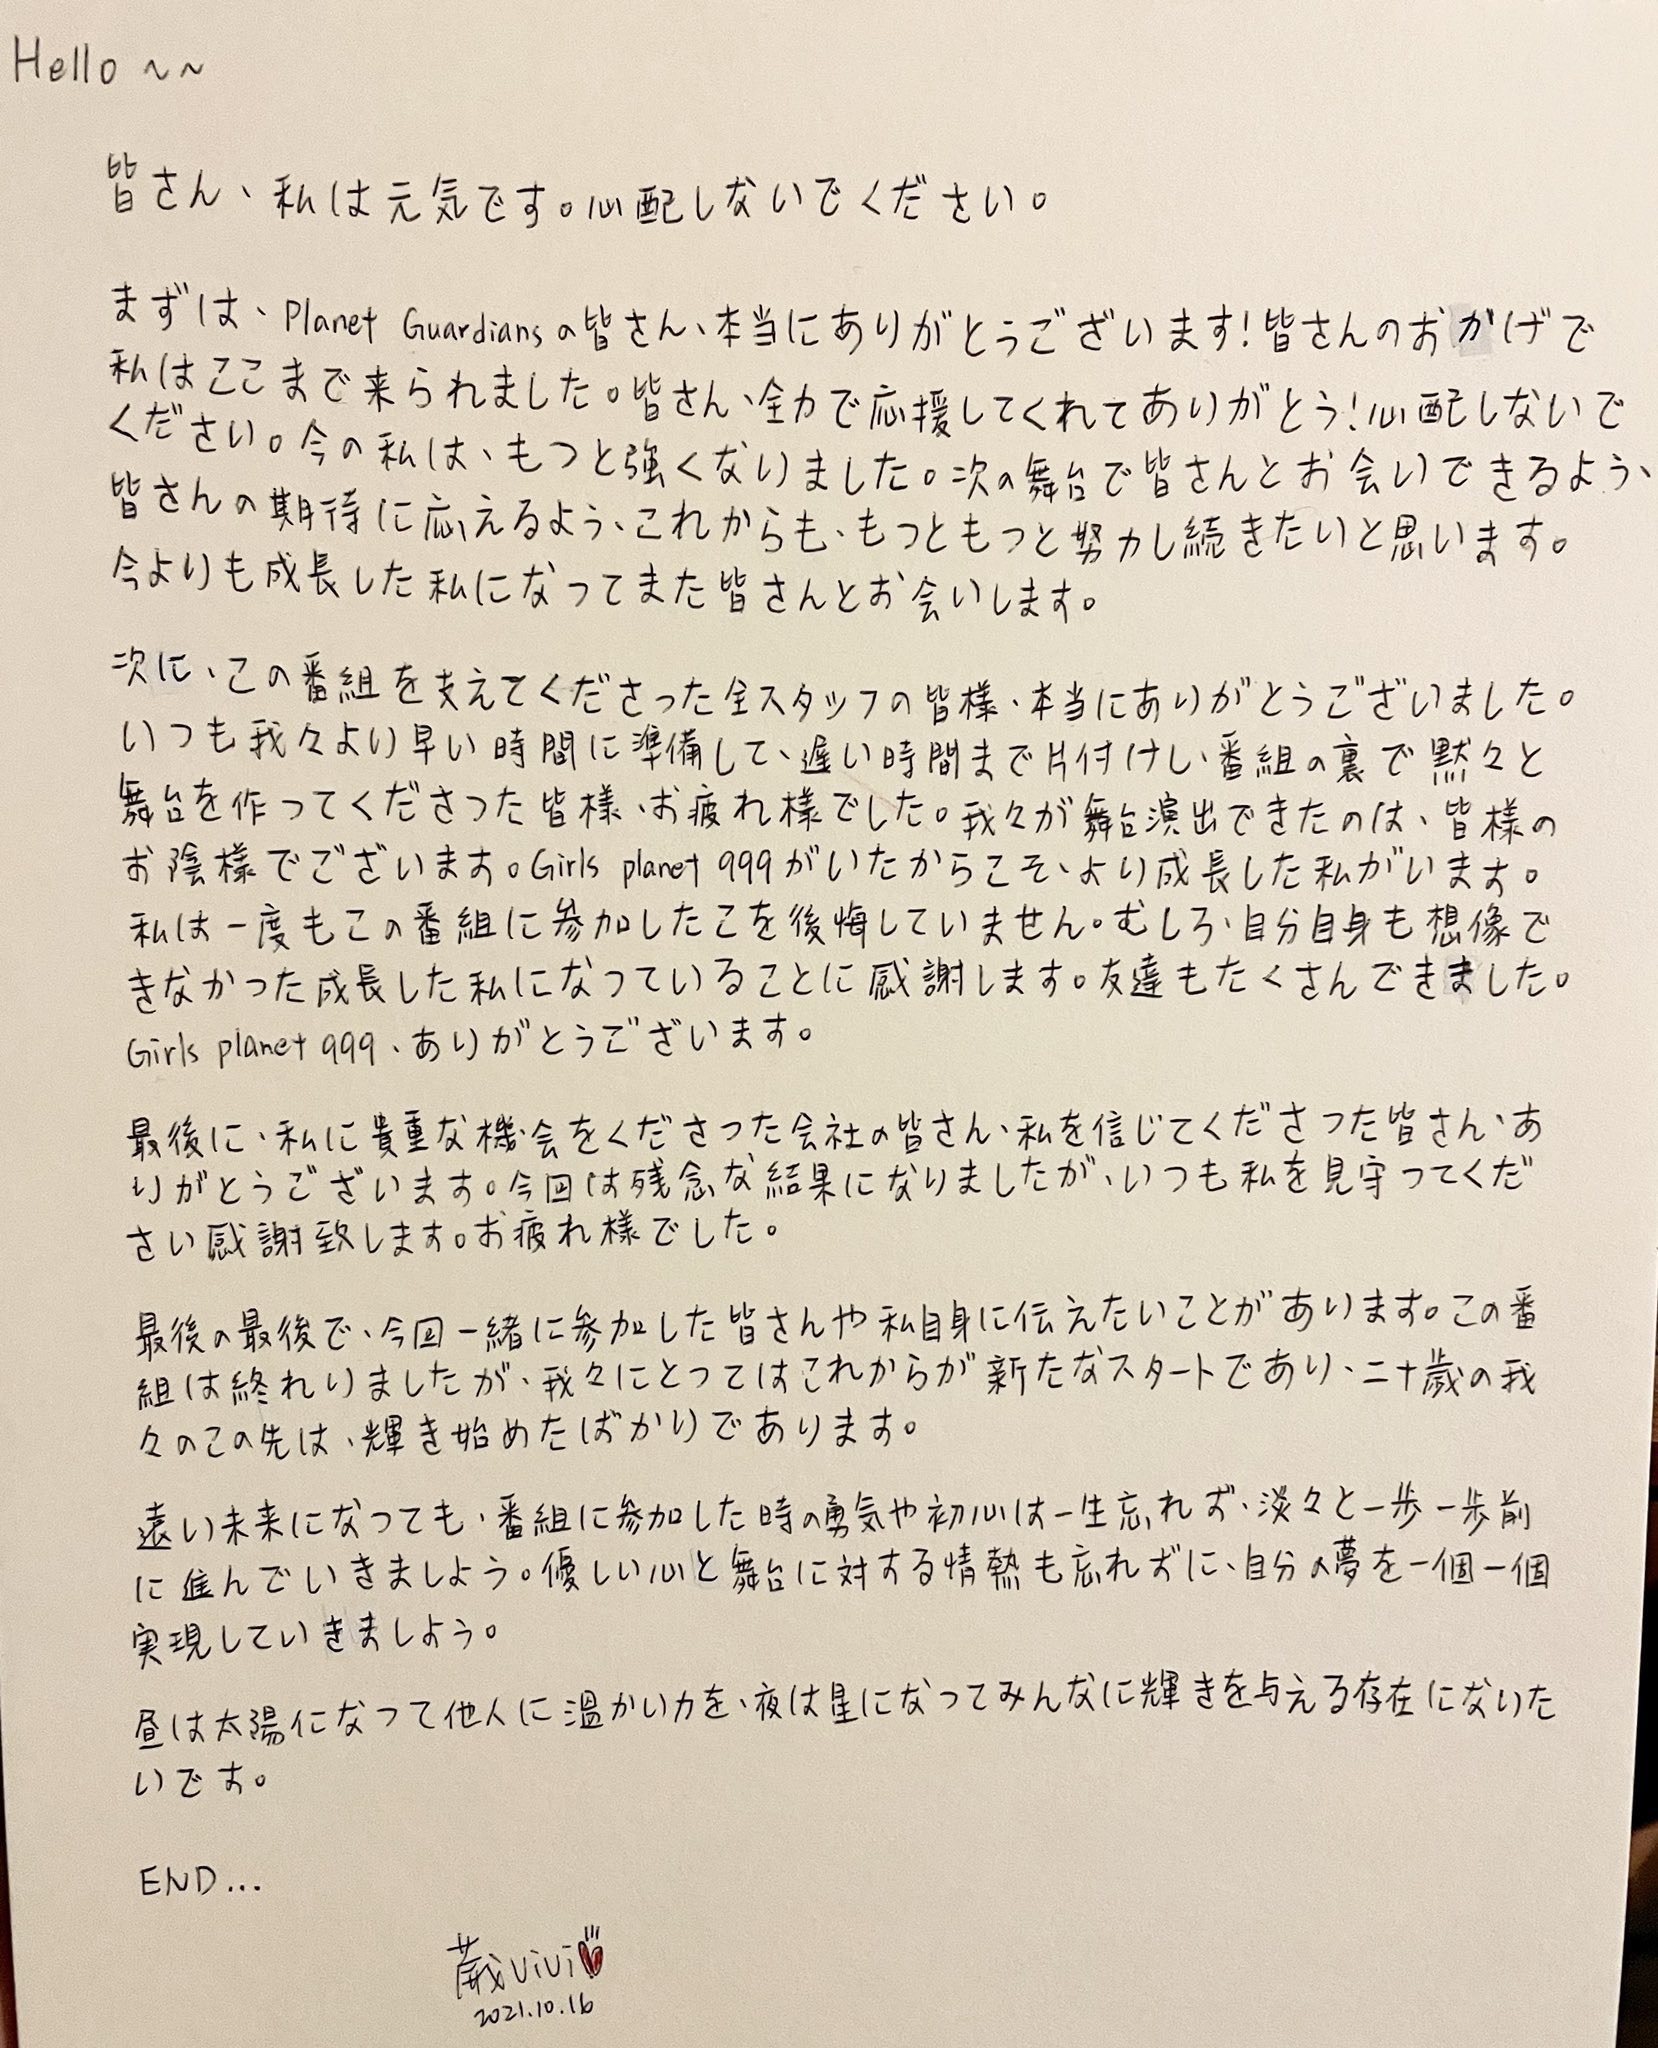 Hello ~~
皆さん、私は元気です。心配しないでください。
まずは、Planet Guardiansの皆さん、本当にありがとうございます!皆さんのおかげで
私はここまで来られました。皆さん、全力で応援してくれてありがとう!心配しないで
ください。今の私は、もっと強くなりました。次の舞台で皆さんとお会いできるよう、
皆さんの期待に応えるよう、これからも、もっともっと努力し続きたいと思います。
今よりも成長した私になってまた皆さんとお会いします。
次に、この番組を支えてくださった全スタッフの皆様、本当にありがとうございました。
いつも我々より早い時間に準備して、遅い時間まで片付けし、番組の裏で黙々と
舞台を作ってくださった皆様、お疲れ様でした。我々が舞台演出できたのは、皆様の
お陰様でございます。Girls planet 999がいたからこそ、より成長した私がいます。
私は一度もこの番組に参加したこを後悔していません。むしろ、自分自身も想像で
きなかった成長した私になっていることに感謝します。友達もたくさんできました。
Girls planet 999、ありがとうございます。
最後に、私に貴重な機会をくださった会社の皆さん、私を信じてくださった皆さん、あ
りがとうございます。今回は残念な結果になりましたが、いつも私を見守ってくだ
さい感謝致します。お疲れ様でした。
最後の最後で、今回一緒に参加した皆さんや私自身に伝えたいことがあります。この番
組は終れりましたが、我々にとってはこれからが新たなスタートであり、二十歳の我
々のこの先は、輝き始めたばかりであります。
遠い未来になっても、番組に参加した時の勇気や初心は一生忘れず、淡々と一歩一歩前
に進んでいきましょう。優しい心と舞台に対する情熱も忘れずに、自分の夢を一個一個
実現していきましょう。
昼は太陽になって他人に温かい力を、夜は星になってみんなに輝きを与える存在になりた
いです。
END...
蕤ViVi
2021.10.16